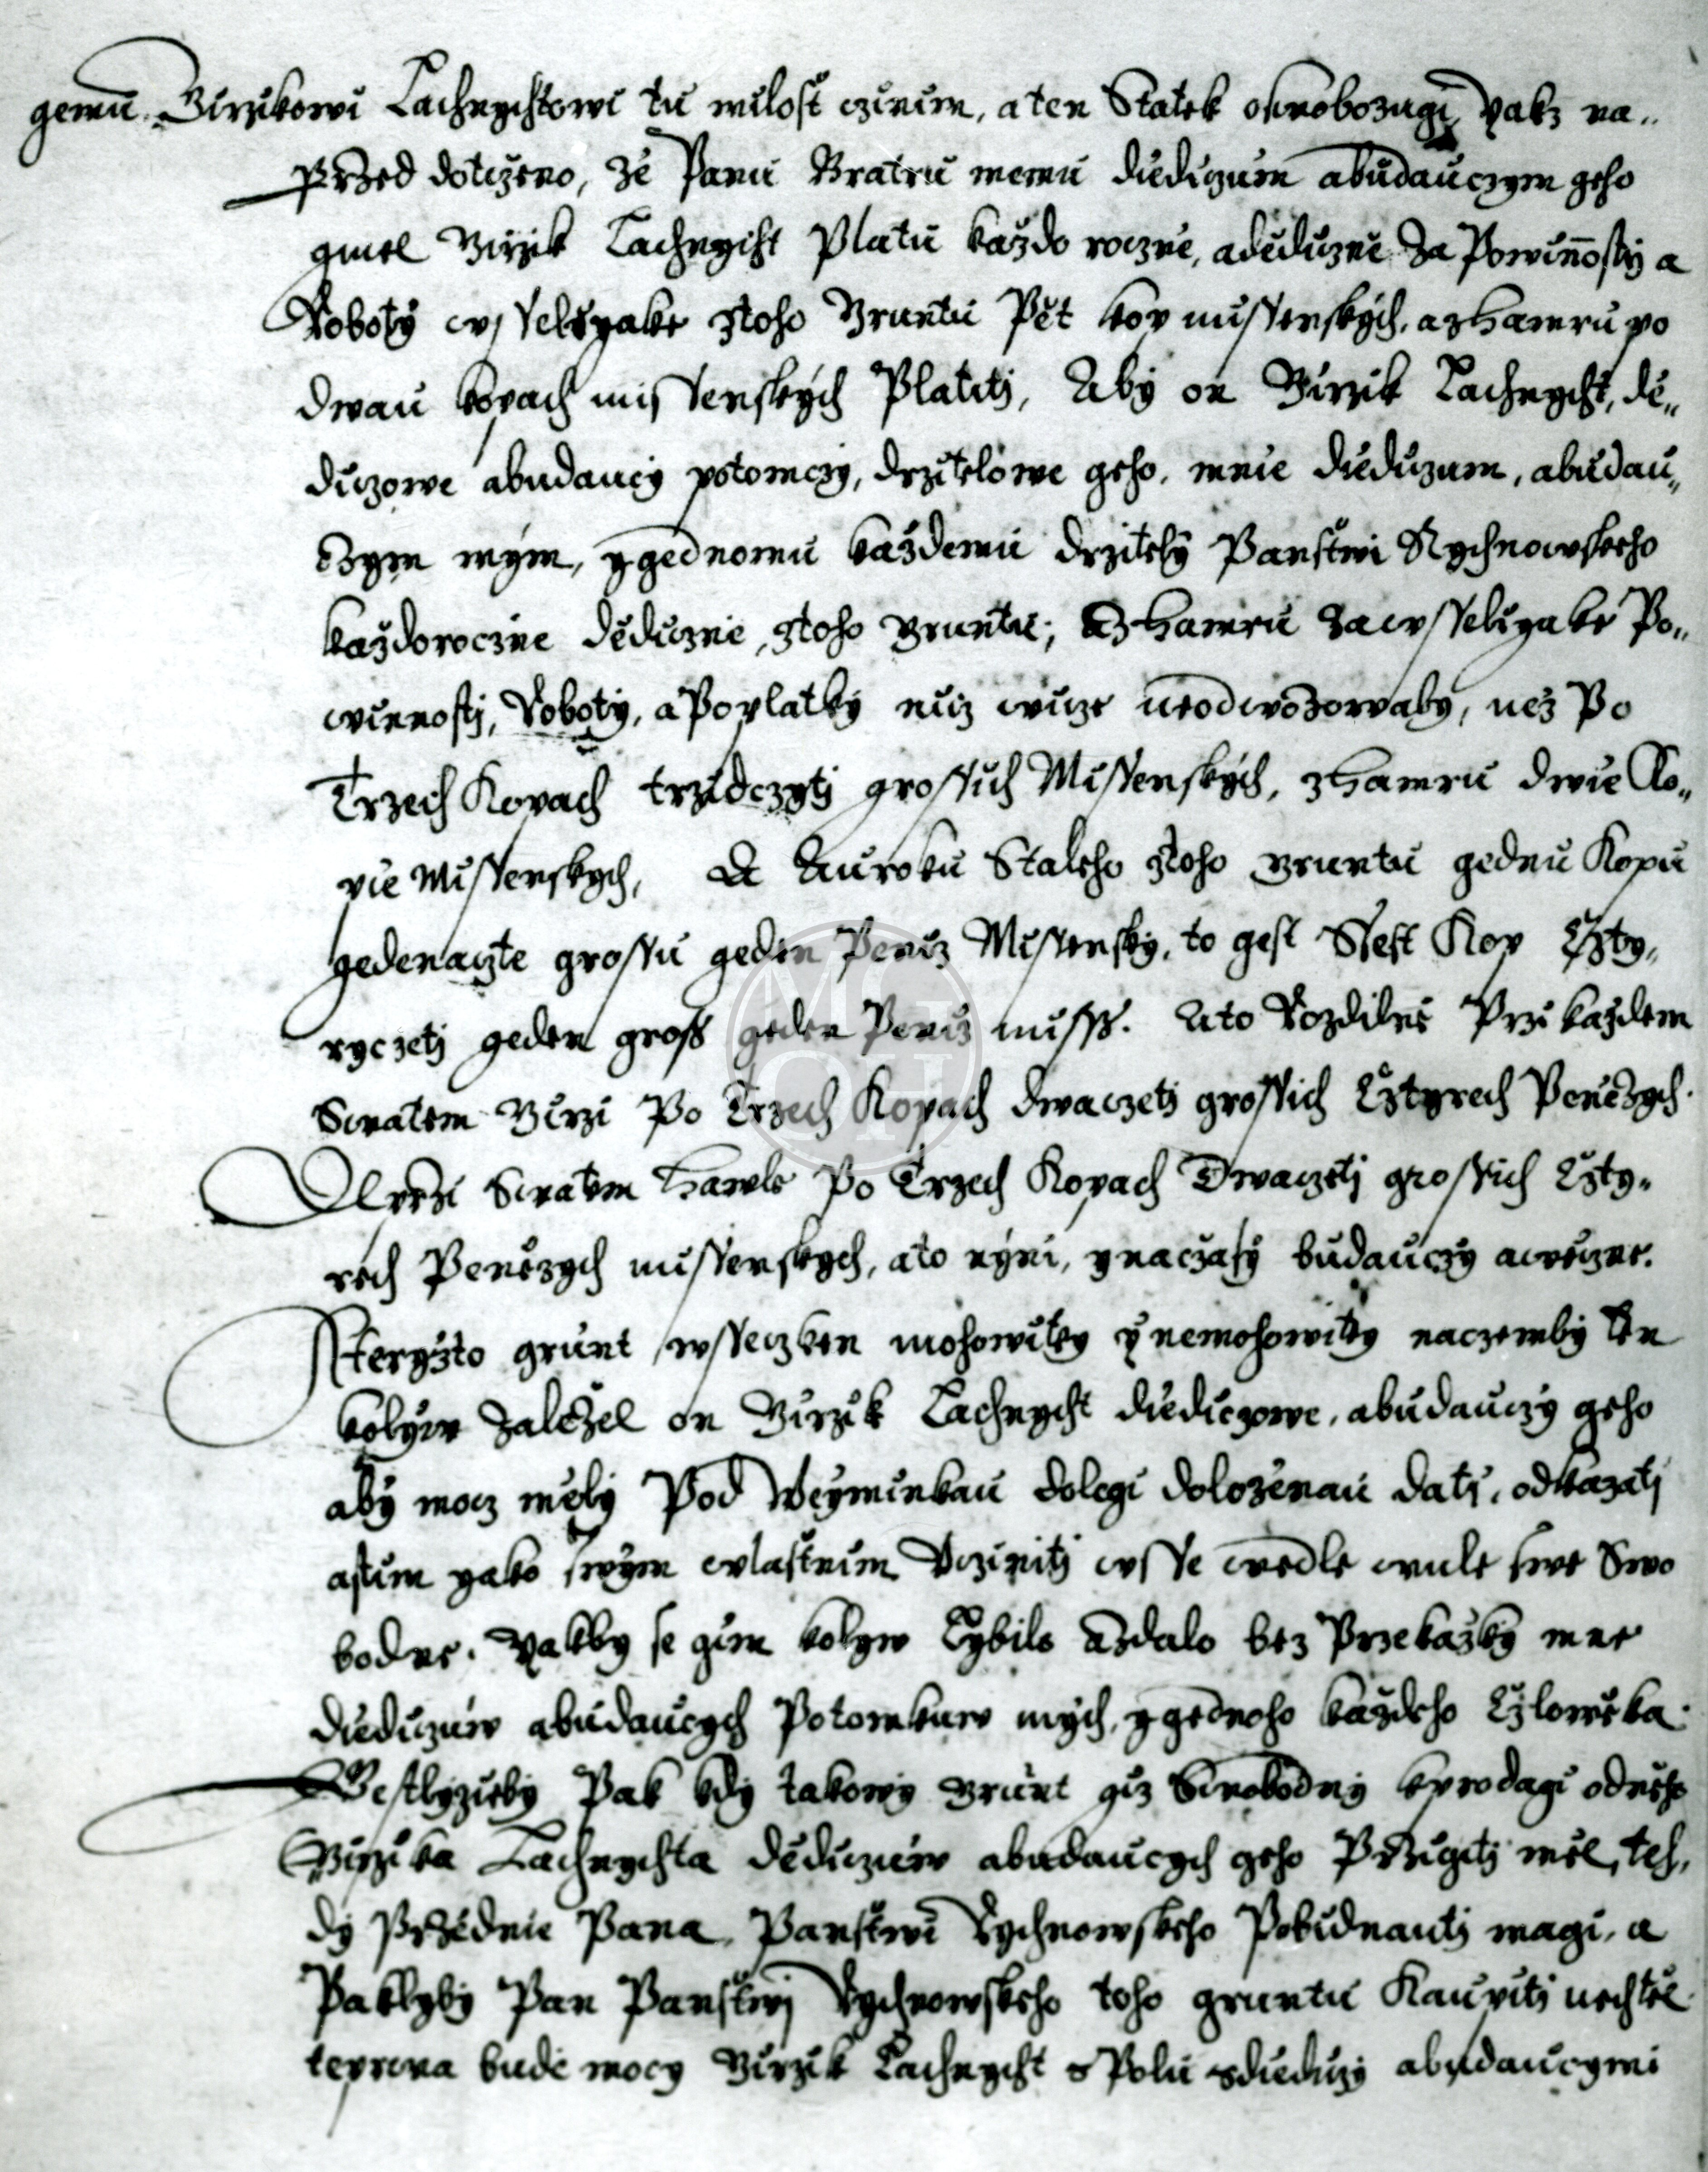 gemu Girzikowi Lachnychtowi tu milost czinim, a ten Statek oswobozugi, yakz na„
przed dotczeno, ze Panu Bratru memu diediczum a budauczym geho
gmel Girzik Lachnycht Platu kazdo rocznie, a dediczne za Powinnosty a
Roboty wsseligake z toho Gruntu Pět kop missenskych, a z Hamru po
dwau kopach missenskych Platiti, Aby on Girzik Lachnycht, de„
diczowe a budaucy potomczy, drzitelowe geho, mnie diediczum, a budau„
czym mym, y gednomu kazdemu drzitely Panstwi Rychnowskeho
kazdoroczne dedicznie, z toho Gruntu, A z Hamru za wsseligake Po„
winnosti, Roboty, a Poplatky nicz wicze neodwozowaby, nez Po
Trzech Kopach trzidczyti grossich Missenskych, z Hamru dwie Ko„
pie Missenskych, A Auroku Staleho z toho Gruntu gednu Kopu
gedenaczte grossu geden Peniz Missensky, to gest Ssest Kop Czty„
ryczeti geden gross geden Peniz miss. A to Rozdilne Przi kazdem
Swatem Girzi Po Trzech Kopach dwaczeti grossich Cztyrech Penězych.
A przi Swatem Hawle Po Trzech Kopach Dwaczeti grossich Czty„
rech Penězych missenskych, a to nyni, y na czasy budauczy a wěczne.
Kteryzto grunt wsseczken mohowity y nemohowity naczemby ten
kolyw zalezel on Girzik Lachnycht diediczowe, a budauczy geho
aby mocz měly Pod Weyminkau dolegi dolozenau dati, odkazati
a stim yako swym wlastnim Vcziniti wsse wedle wule swe Swo
bodne. Yakby se gim kolyw Lybilo A zdalo bez Przekazky mne
diediczuw a budaucych Potomkuw mych, y gednoho kazdeho Czlowěka.
Gestlyzieby Pak kdy takowy Grunt giz Swobodny k prodagi od něho
Girzika Lachnychta dediczuw a budaucych geho Przigiti měl, teh„
dy Przednie Pana Panstwi Rychnowskeho Pobidnauti magi, a
Paklyby Pan Panstwi Rychnowskeho toho gruntu Kaupiti nechtěl
teprwa bude mocy Girzik Lachnycht s Polu s diediczy a budaucymi